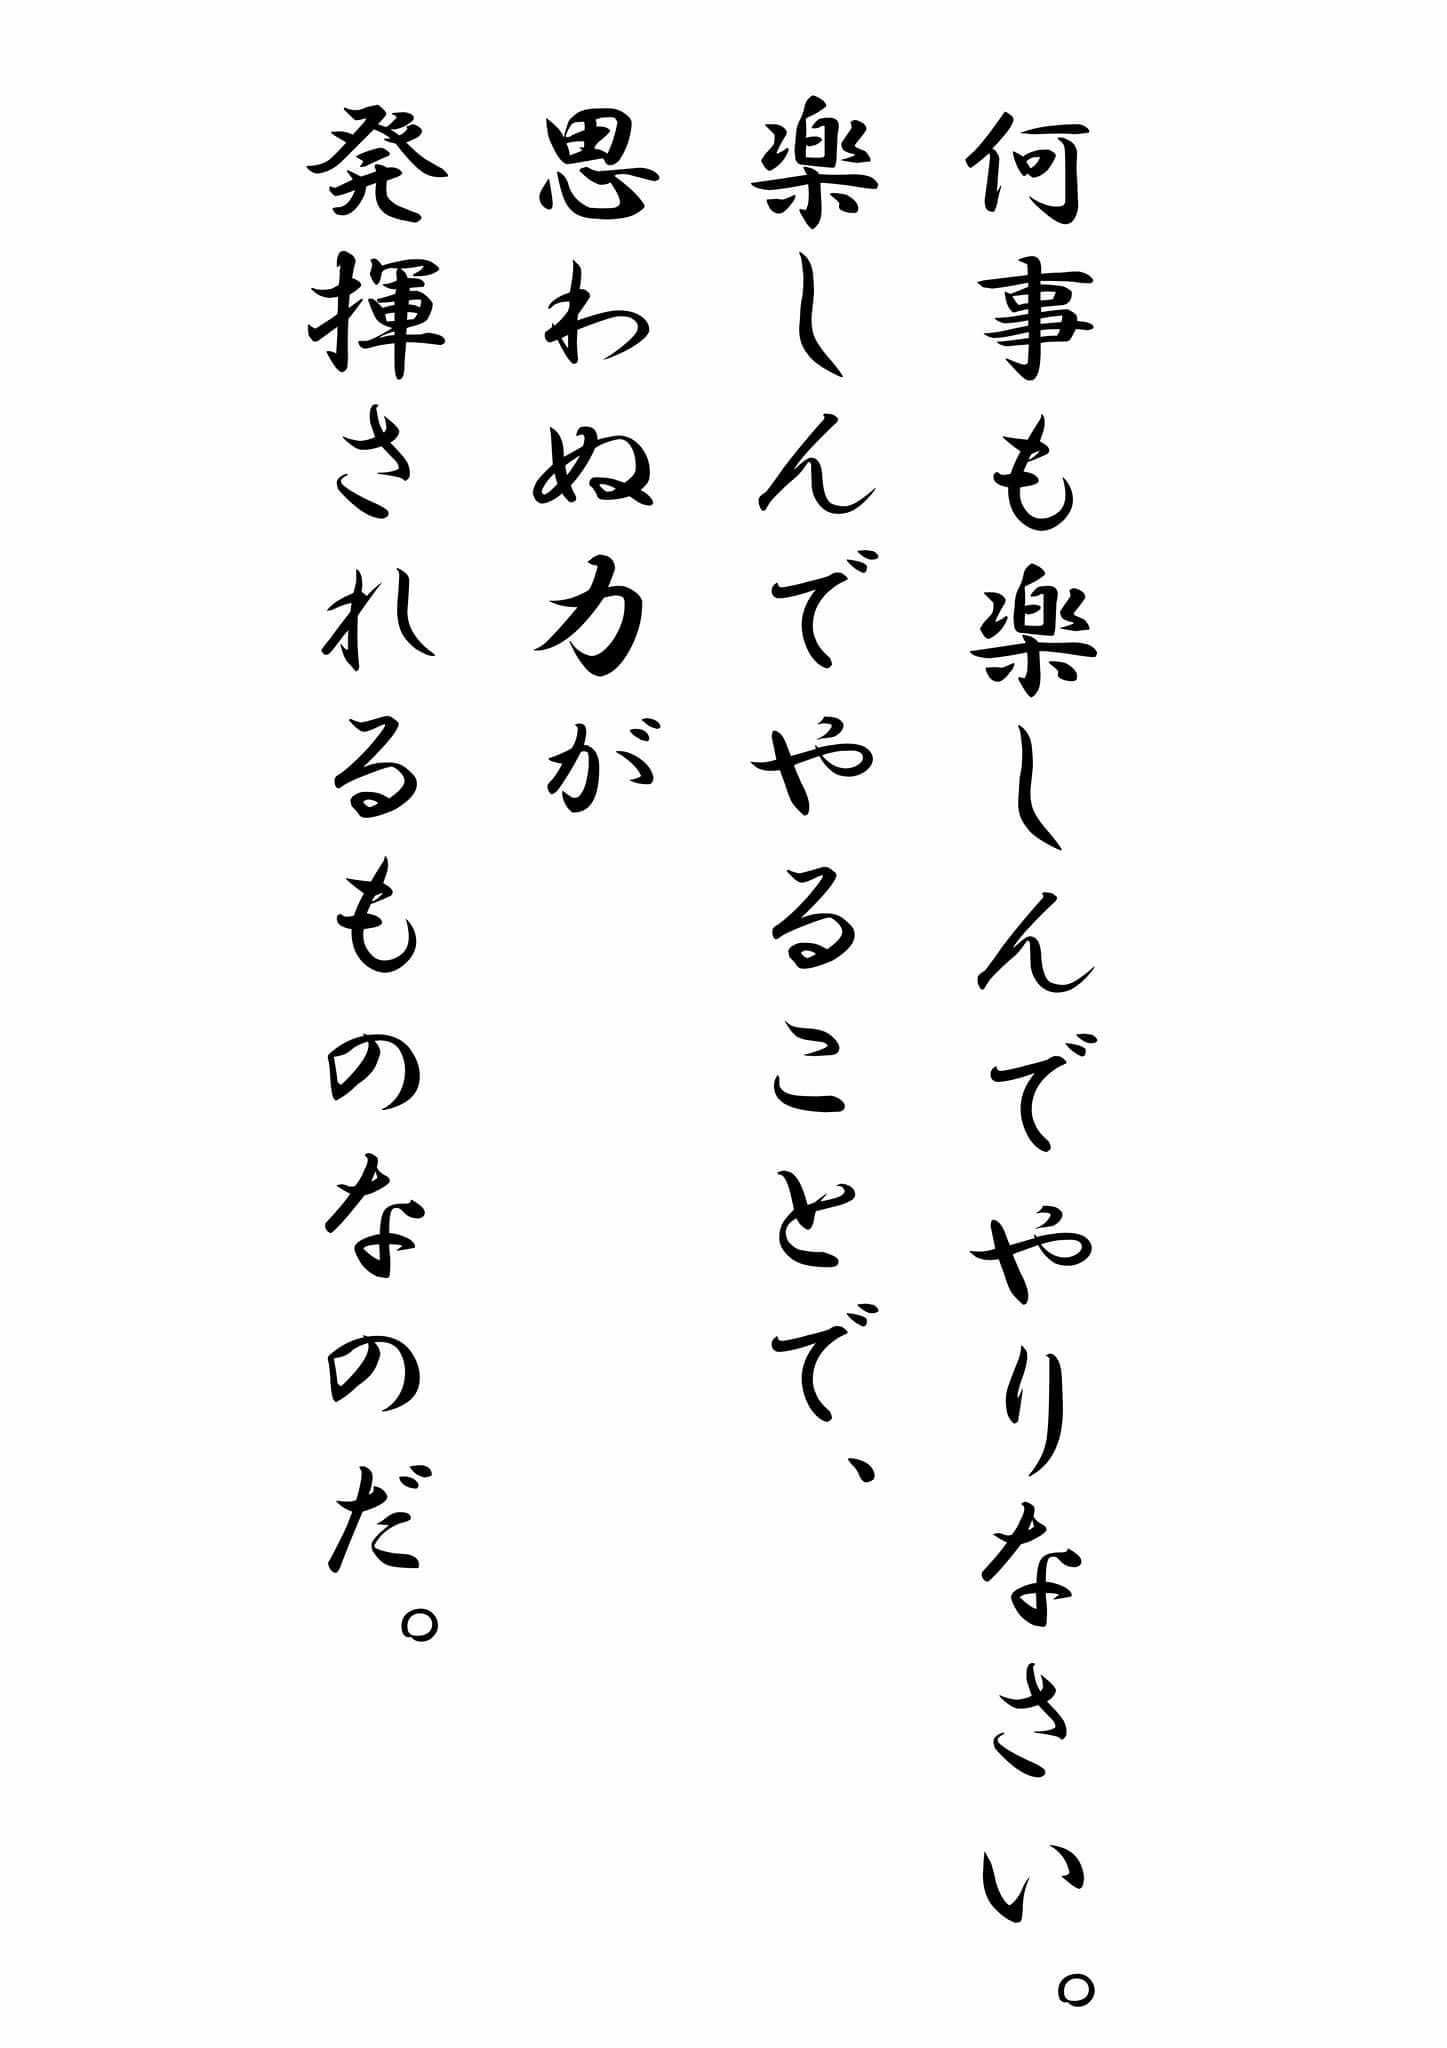 何事も楽しんでやりなさい。
楽しんでやることで、
思わぬ力が
発揮されるものなのだ。